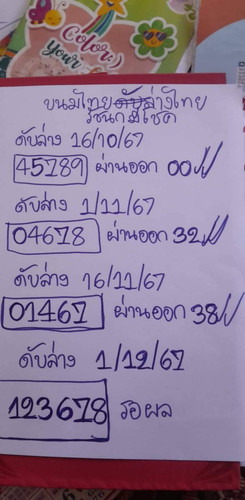 Color
Your
ขนมไทยดับล่างไทย
รัชนกมีโชค
ดับล่าง 16/10/67
45789 ผ่านออก 00
ดับล่าง 1/11/67
04678 ผ่านออก 32
ดับล่าง 16/11/67
01467 ผ่านออก 38
ดับล่าง 1/12/67
123678 รอผล